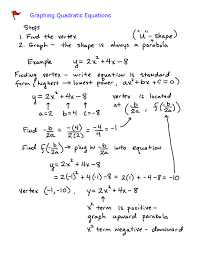 Graphing Quadratic Equations
Steps
1. Find the vertex ("U"-shape)
2. Graph - the shape is always a parabola
Example y = 2x² + 4x - 8
Finding vertex - write equation is standard
form (highest → lowest power, ax² + bx + c = 0)
y = 2x² + 4x - 8 vertex is located
a=2 b=4 c=-8 at (-b/2a, f(-b/2a))
Find -b/2a = -(4)/2(2) = -4/4 = -1
Find f(-b/2a) → plug in -b/2a into equation
y = 2x² + 4x - 8
= 2(-1)² + 4(-1) - 8 = 2(1) + -4 - 8 = -10
vertex (-1, -10), y = 2x² + 4x - 8
x² term is positive -
graph upward parabola
x² term negative - downward